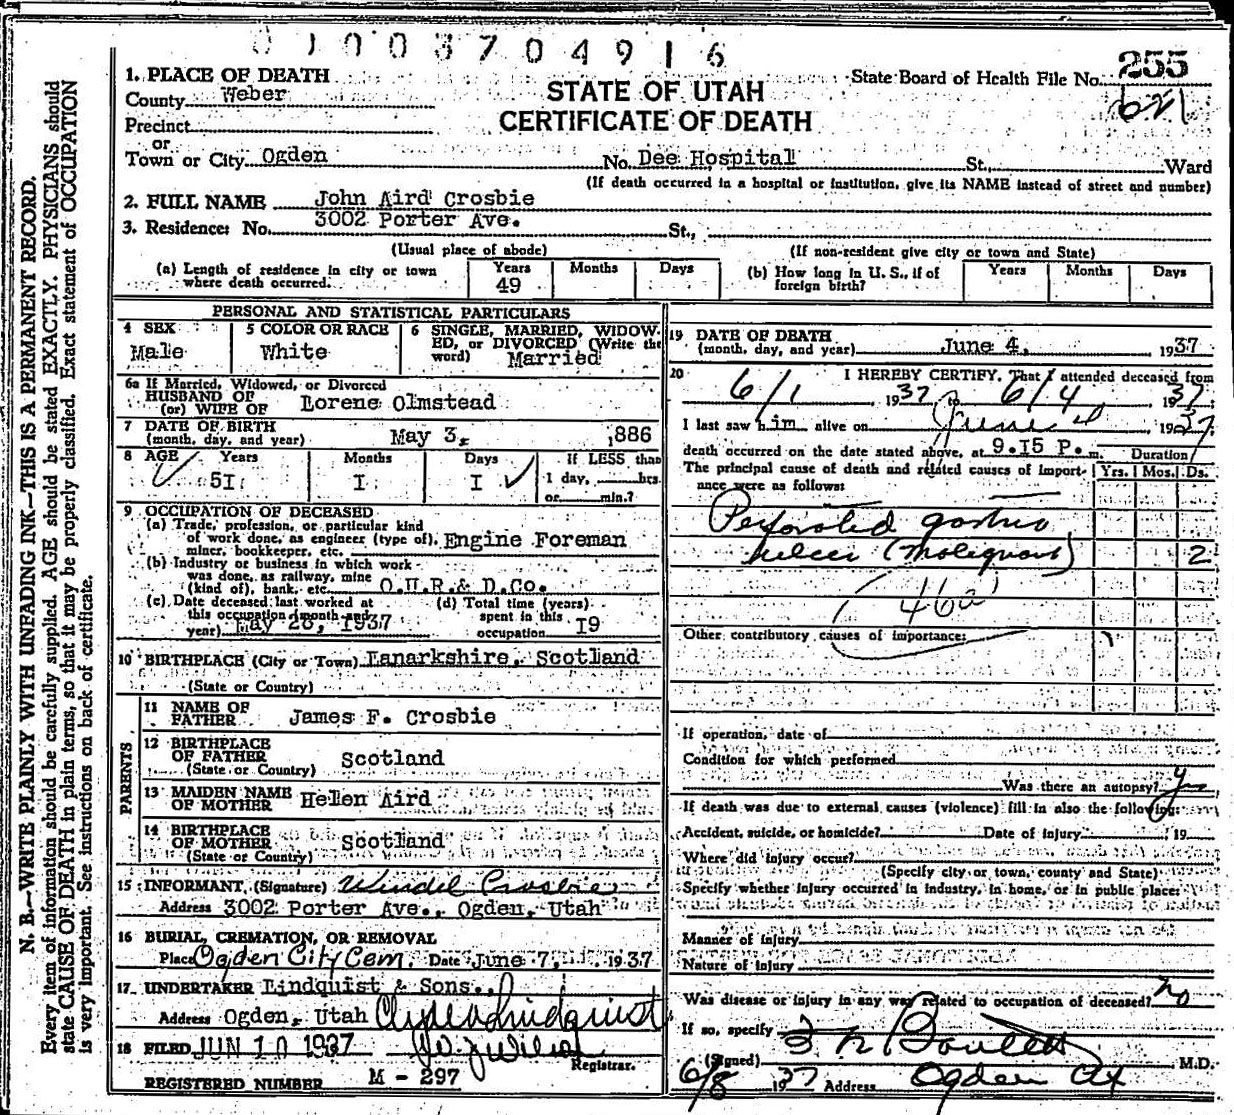 01003704916
255
State Board of Health File No.
621
1. PLACE OF DEATH
County Weber
STATE OF UTAH
CERTIFICATE OF DEATH
Precinct
or
Town or City Ogden No. Dee Hospital St., Ward
(If death occurred in a hospital or institution, give its NAME instead of street and number)
2. FULL NAME John Aird Crosbie
3. Residence: No. 3002 Porter Ave. St.,
(Usual place of abode) (If non-resident give city or town and State)
(a) Length of residence in city or town where death occurred. Years 49 Months Days
(b) How long in U. S., if of foreign birth? Years Months Days
PERSONAL AND STATISTICAL PARTICULARS
4 SEX Male
5 COLOR OR RACE White
6 SINGLE, MARRIED, WIDOWED, or DIVORCED (Write the word) Married
6a If Married, Widowed, or Divorced
HUSBAND OF
(or) WIFE OF Lorene Olmstead
7 DATE OF BIRTH
(month, day, and year) May 3, 1886
8 AGE Years 51 Months 1 Days 1 If LESS than 1 day, hrs. or min.?
9 OCCUPATION OF DECEASED
(a) Trade, profession, or particular kind
of work done, as engineer (type of),
miner, bookkeeper, etc. Engine Foreman
(b) Industry or business in which work
was done, as railway, mine
(kind of), bank, etc. O.U.R.& D.Co.
(c) Date deceased last worked at
this occupation (month and
year) May 28, 1937
(d) Total time (years)
spent in this
occupation 19
10 BIRTHPLACE (City or Town) Lanarkshire, Scotland
(State or Country)
PARENTS
11 NAME OF
FATHER James F. Crosbie
12 BIRTHPLACE
OF FATHER Scotland
(State or Country)
13 MAIDEN NAME
OF MOTHER Hellen Aird
14 BIRTHPLACE
OF MOTHER Scotland
(State or Country)
15 INFORMANT, (Signature) Windel Crosbie
Address 3002 Porter Ave., Ogden, Utah
16 BURIAL, CREMATION, OR REMOVAL
Place Ogden City Cem. Date June 7, 1937
17 UNDERTAKER Lindquist & Sons.,
Address Ogden, Utah Clyde Lindquist
18 FILED JUN 10 1937
Registrar.
REGISTERED NUMBER M - 297
19 DATE OF DEATH
(month, day, and year) June 4, 1937
20 I HEREBY CERTIFY, That I attended deceased from
6/1 1937 to 6/4 1937
I last saw him alive on June 4, 1937
death occurred on the date stated above, at 9.15 P. m. Duration
The principal cause of death and related causes of importance were as follows: Yrs. Mos. Ds.
Perforated gastric
ulcer (Malignant) 2
46a
Other contributory causes of importance:
If operation, date of
Condition for which performed
Was there an autopsy? y
If death was due to external causes (violence) fill in also the following:
Accident, suicide, or homicide? Date of injury 19
Where did injury occur?
(Specify city or town, county and State)
Specify whether injury occurred in industry, in home, or in public place:
Manner of injury
Nature of injury
Was disease or injury in any way related to occupation of deceased? no
If so, specify
(Signed) M.D.
6/8 1937 Address Ogden Ut
N. B.—WRITE PLAINLY WITH UNFADING INK—THIS IS A PERMANENT RECORD.
Every item of information should be carefully supplied. AGE should be stated EXACTLY. PHYSICIANS should
state CAUSE OF DEATH in plain terms, so that it may be properly classified. Exact statement of OCCUPATION
is very important. See instructions on back of certificate.